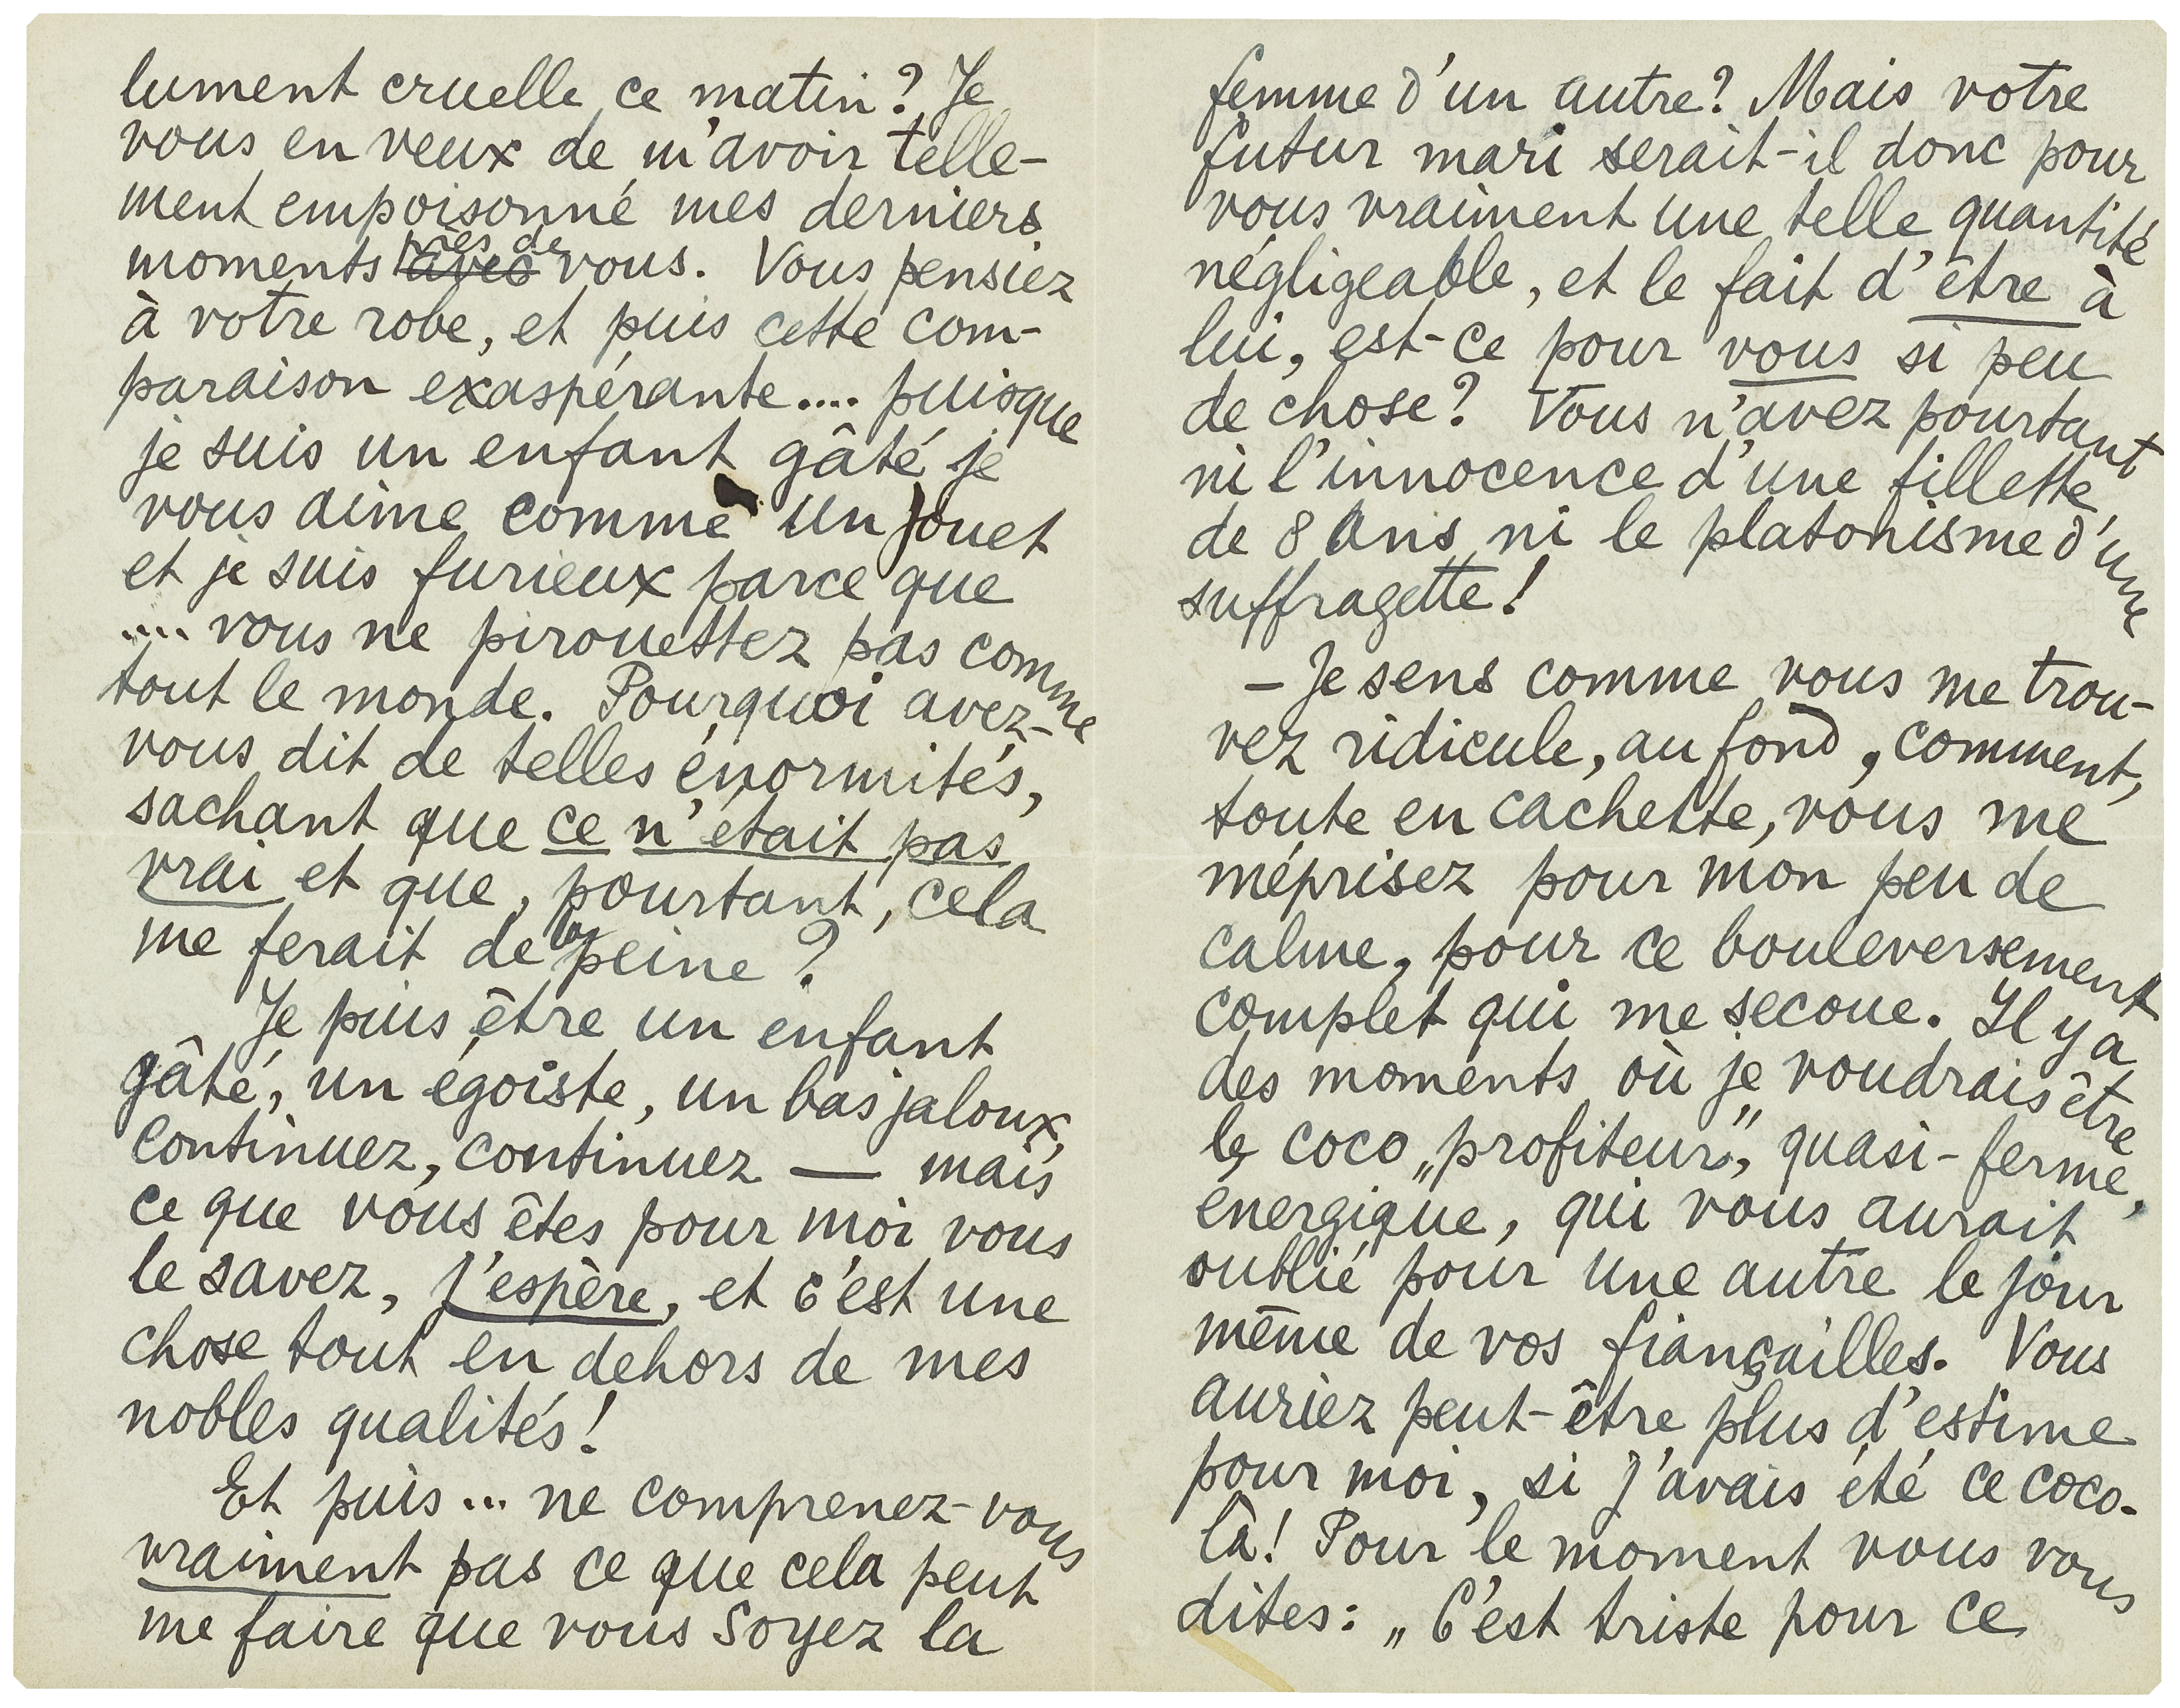 lument cruelle ce matin? Je
vous en veux de m'avoir telle-
ment empoisonné mes derniers
moments avec près de vous. Vous pensiez
à votre robe, et puis cette com-
paraison exaspérante.... puisque
je suis un enfant gâté je
vous aime comme un jouet
et je suis furieux parce que
.... vous ne pirouettez pas comme
tout le monde. Pourquoi avez-
vous dit de telles énormités,
sachant que ce n'était pas
vrai et que, pourtant, cela
me ferait de la peine?
Je puis être un enfant
gâté, un égoïste, un bas jaloux,
continuez, continuez — mais
ce que vous êtes pour moi vous
le savez, j'espère, et c'est une
chose tout en dehors de mes
nobles qualités!
Et puis... ne comprenez-vous
vraiment pas ce que cela peut
me faire que vous soyez la
femme d'un autre? Mais votre
futur mari serait-il donc pour
vous vraiment une telle quantité
négligeable, et le fait d'être à
lui, est-ce pour vous si peu
de chose? Vous n'avez pourtant
ni l'innocence d'une fillette
de 8 ans ni le platonisme d'une
suffragette!
– Je sens comme vous me trou-
vez ridicule, au fond, comment,
toute en cachette, vous me
méprisez pour mon peu de
calme, pour ce bouleversement
complet qui me secoue. Il y a
des moments où je voudrais être
le coco „profiteur", quasi-ferme,
énergique, qui vous aurait
oublié pour une autre le jour
même de vos fiançailles. Vous
auriez peut-être plus d'estime
pour moi, si j'avais été ce coco-
là! Pour le moment vous vous
dites: „C'est triste pour ce